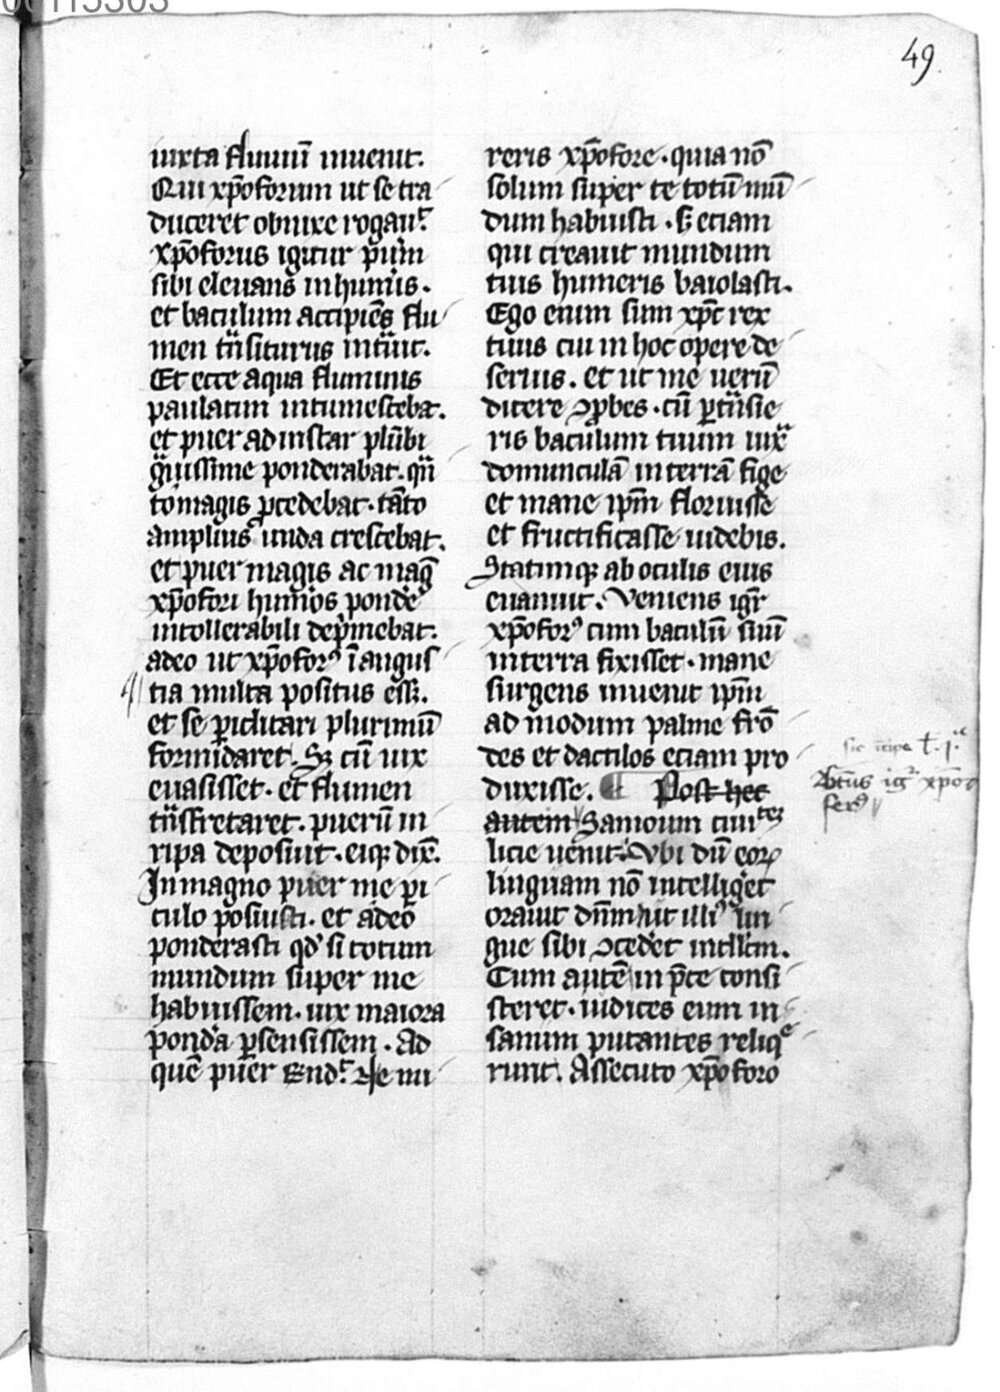 49
iuxta fluuiũ inuenit.
Qui xp̃oforum ut se tra
duceret obnixe rogauͭ.
xp̃oforus igitur pũm
sibi eleuans in humis.
et baculum accipiẽs flu
men tñsiturus intũit.
Et ecce aqua fluminis
paulatim intumescebat.
et puer ad instar plũbi
g̃uissime ponderabat. qñ
to magis p̱cedebat. tãto
amplius unda crescebat.
et puer magis ac mag̃
xp̃ofori hum̃os ponde
intollerabili dep̃mebat.
adeo ut xp̃oforꝰ ĩ angus
tia multa positus essꝫ.
et se p̱iclitari plurimũ
formidaret. Sꝫ cũ uix
euasisset. et flumen
tñsfretaret. puerũ in
ripa deposuit. eiqꝫ dix̃.
In magno puer me pi
culo posuisti. et adeo
ponderasti qd̓ si totum
mundum super me
habuissem. uix maiora
pond̾a p̱sensissem. Ad
quẽ puer rñd̾ͭ. Ne mi
reris xp̃ofore. quia nõ
solum super te totũ mũ
dum habuisti. s̾ eciam
qui creauit mundum
tuis humeris baiolasti.
Ego enim sum xp̃c rex
tuus cui in hoc opere de
seruis. et ut me uerũ
dicere ꝓbes. cũ p̱tñsie
ris baculum tuum iuxͣ
domunculã in terrã fige
et mane ip̃m floruisse
et fructificasse uidebis.
Statimqꝫ ab oculis eius
euanuit. Veniens igr̃
xp̃oforꝰ cum baculũ suũ
in terra fixisset. mane
surgens inuenit ip̃m
ad modum palme frõ
des et dactilos eciam pro
duxisse. Post hec
autem Samoum ciuiͭᵉᶻ
licie uenit. Vbi dũ eoꝝ
linguam nõ intelliget
orauit dñm ut illiꝰ lin
gue sibi ꝯcedet intllcm̃.
Cum autẽ in p̃ce consi
steret. iudices eum in
sanum putantes reliqͤ
runt. Assecuto xp̃oforo
sic incipe
igr̃ xp̃o
ferꝰ